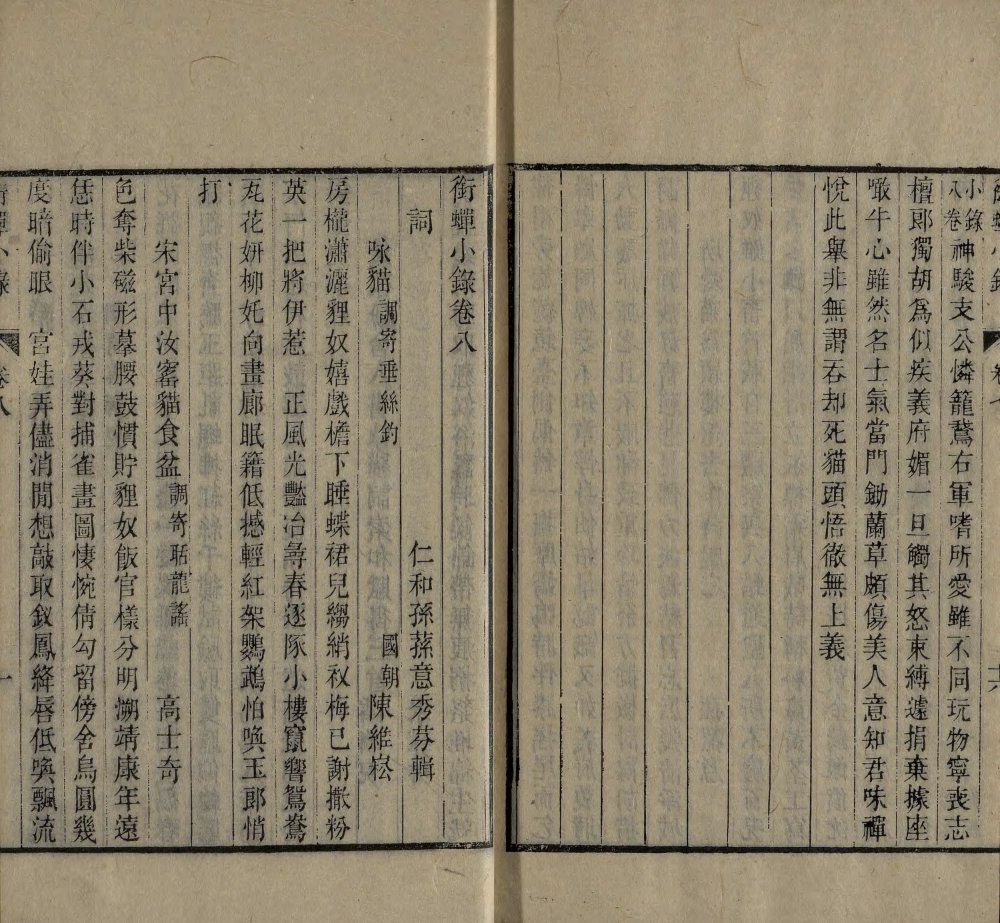 小錄八卷神駿支公憐籠鵞右軍嗜所愛雖不同玩物寧喪志
檀郎獨胡爲似疾義府媚一旦觸其怒束縛遽捐棄據座
噉牛心雖然名士氣當門鋤蘭草頗傷美人意知君味禪
悅此舉非無謂吞却死貓頭悟徹無上義
銜蟬小錄卷八
詞 仁和孫蓀意秀芬輯
咏貓 調寄垂絲釣 國朝陳維崧
房櫳瀟灑貍奴嬉戲檐下睡蝶裙兒縐綃衩梅已謝撒粉
英一把將伊惹 正風光豔冶尋春逐隊小樓竄響鴛鴦
瓦花妍柳奼向畫廊眠籍低撼輕紅架鸚鵡怕喚玉郎悄
打
宋宮中汝窰貓食盆 調寄聒龍謠 高士奇
色奪柴磁形摹腰鼓慣貯貍奴飯官樣分明溯靖康年遠
恁時伴小石戎葵對捕雀畫圖悽惋倩勾留傍舍烏圓幾
度暗偷眼 宮娃弄儘消閒想敲取釵鳳絳唇低喚飄流